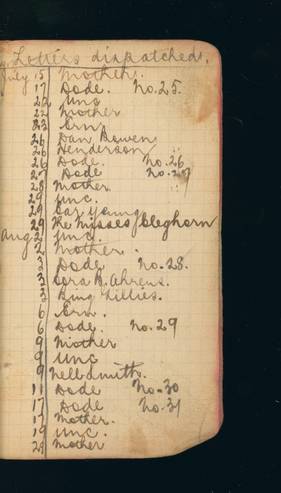 Letters dispatched.
July 15 Mother.
17 Dode. No. 25.
22 Unc
22 Mother
23 Ern
26 Dan Bowen
26 Henderson
26 Dode. No. 26
27 Dode No. 27
28 Mother
29 Unc.
29 Young
29 The Misses Cleghorn
Aug 2 Unc.
2 Mother.
3 Dode No. 28.
3 B. Ahrens.
3 Lillies.
6 Ern.
6 Dode. No. 29
9 Mother
9 Unc
9 Nell Smith.
11 Dode No. 30
17 Dode No. 31
17 Mother.
19 Unc.
24 Mother